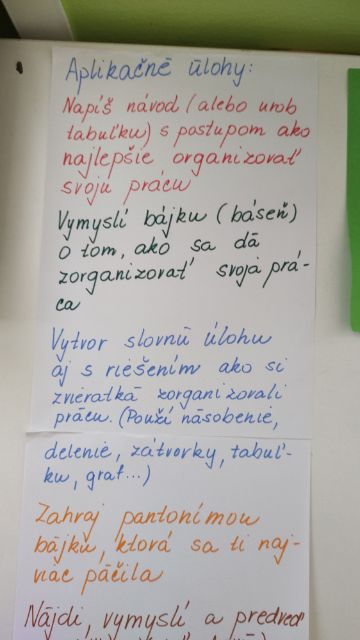 Aplikačné úlohy:
Napíš návod (alebo urob
tabuľku) s postupom ako
najlepšie organizovať
svoju prácu
Vymysli bájku (báseň)
o tom, ako sa dá
zorganizovať svoja prá-
ca
Vytvor slovnú úlohu
aj s riešením ako si
zvieratká zorganizovali
prácu. (Použi násobenie,
delenie, zátvorky, tabuľ-
ku, graf...)
Zahraj pantonímou
bájku, ktorá sa ti naj-
viac páčila
Nájdi, vymysli a predveď